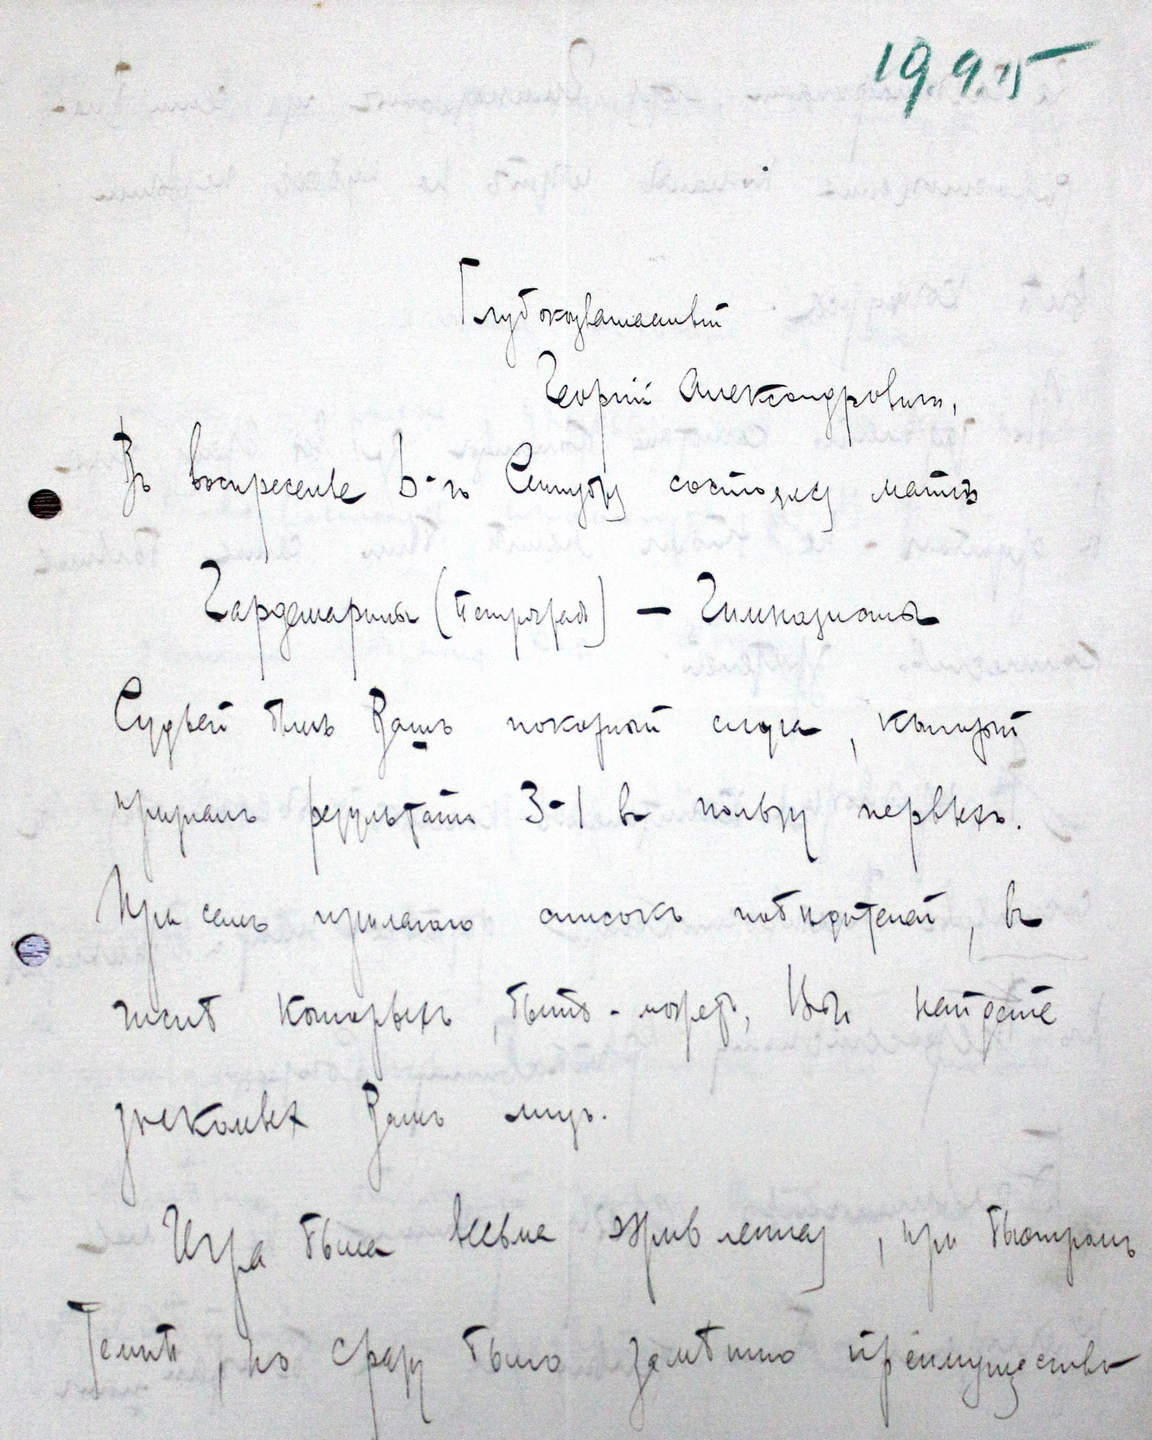 19.9.15
Глубокоуважаемый
Георгій Александровичъ,
Въ воскресенье 6-го Сентября состоялся матчъ
Гардемарины (Петроградъ) — Гимназисты
Судьей былъ Вашъ покорный слуга, который
призналъ результатъ 3-1 въ пользу первыхъ.
При семъ прилагаю списокъ побѣдителей, въ
числѣ которыхъ, быть-можетъ, Вы найдете
знакомыхъ Вамъ лицъ.
Игра была весьма оживленная, при быстромъ
темпѣ, но сразу было замѣтно преимущество